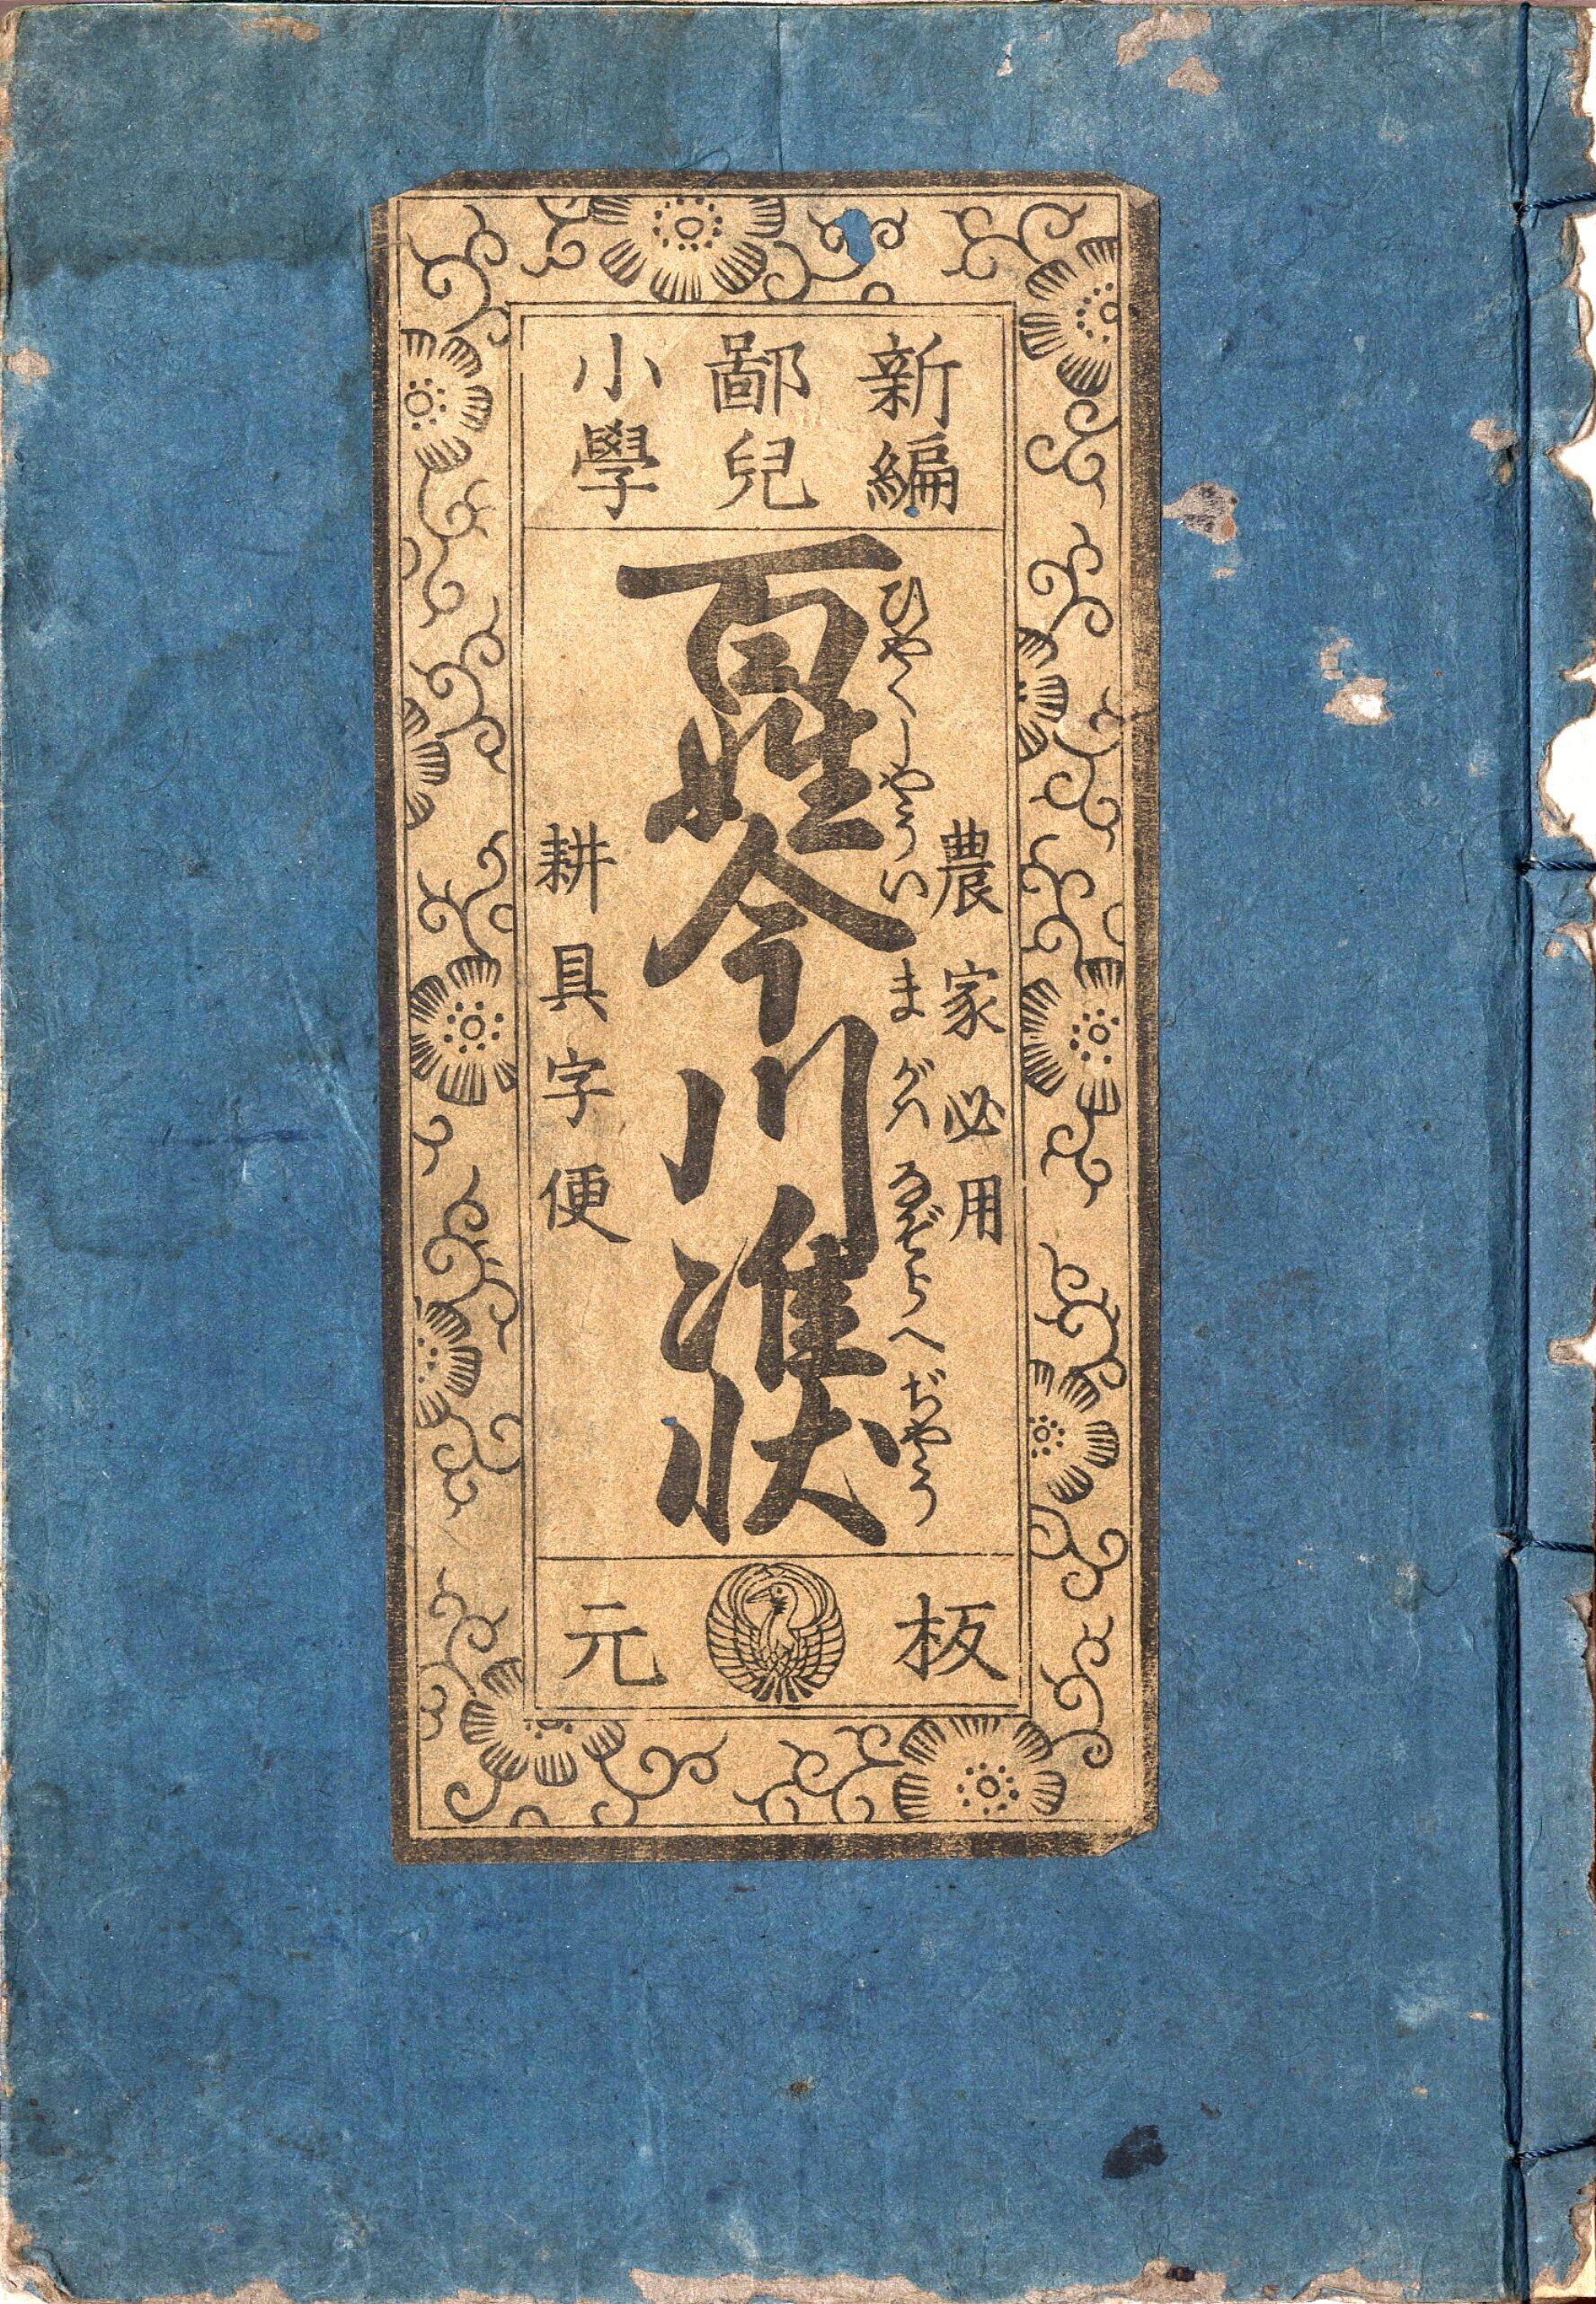 新編
鄙兒
小學
農家必用
ひやくしやういまがはなぞらへぢやう
百姓今川準状
耕具字便
板元